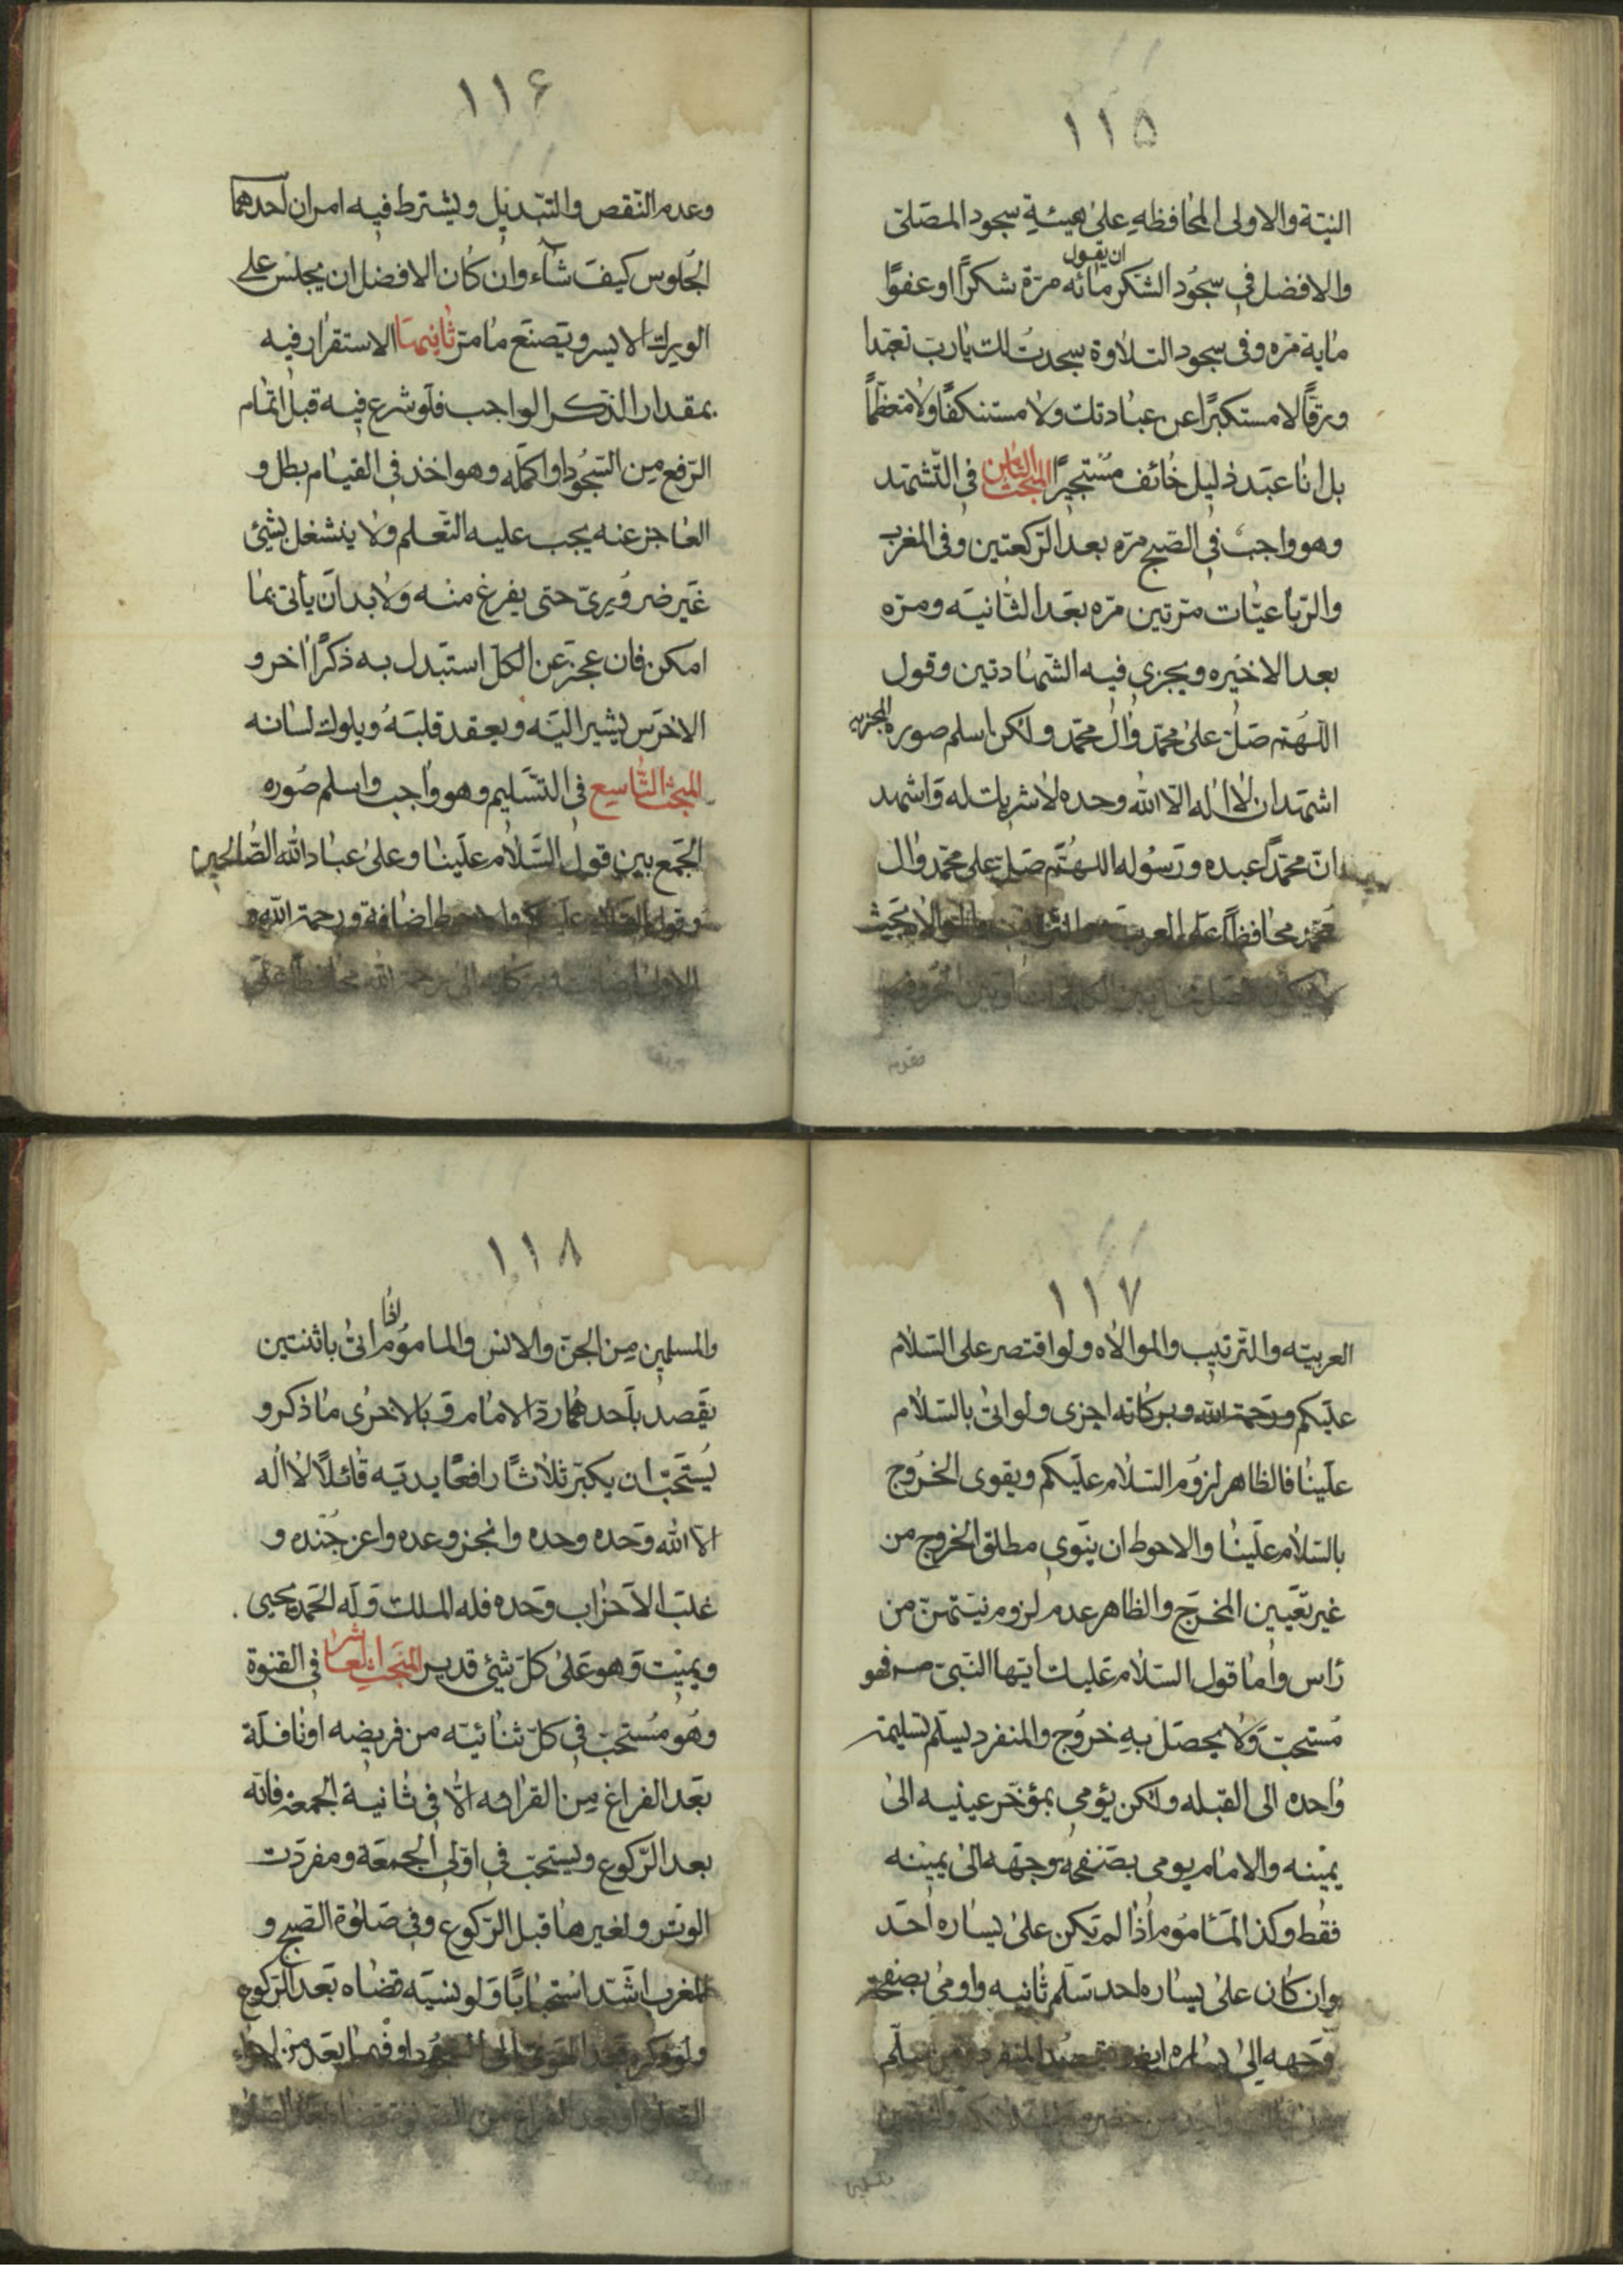 ١١٥
النيّة والاولى المحافظه على هيئة سجود المصلّى
ان يقول
والافضل في سجود الشكر مائه مرّة شكرًا او عفوًا
مايه مرّه وفى سجود التلاوة سجدت لك يارب تعبّدا
ورقًّا لا مستكبرًا عن عبادتك ولا مستنكفًا ولا متعظّمًا
بل انا عبد ذليل خائف مستجيرًا المبحث الثامن في التّشهّد
وهو واجب في الصّبح مرّه بعد الرّكعتين وفى المغرب
والرّباعيّات مرّتين مرّه بعد الثّانيه ومرّه
بعد الاخيره ويجزى فيه الشّهادتين وقول
اللهُمّ صَلّ على محمّد وال محمّد ولكن اسلم صوره المجزيه
اشهد ان لا اله الّا الله وحده لا شريك له واشهد
انّ محمّدًا عبده ورسوله اللهُمّ صَلّ على محمّد وال
محمّد محافظًا على العربيّه والموالاة بحيث
بين الكلمات او بين الحروف
مقدم
١١۶
وعدم النّقص والتّبديل ويشترط فيه امران احدهما
الجلوس كيف شآء وان كان الافضل ان يجلس على
الورك الايسر ويصنع ما مرّ ثانيهما الاستقرار فيه
بمقدار الذّكر الواجب فلو شرع فيه قبل اتمام
الرّفع من السّجُود او اكمله وهو اخذ في القيام بطل و
العاجز عنه يجب عليه التّعلم ولا ينشغل بشيئ
غير ضروُرىّ حتى يفرغ منه ولابد ان يأتى بما
امكن فان عجز عن الكلّ استبدل به ذكرًا اخر و
الاخرس يشير اليه ويعقد قلبَهُ ويلوك لسانه
المبحث التّاسع في التّسليم وهو واجب واسلم صُوره
الجمع بين قول السّلام علينا وعلى عباد الله الصّالحين
وقول السّلام عليكم والاحوط اضافة ورحمة الله و
الاولى اضافة وبركاته الى رحمة الله محافظًا على
١١٧
العربيّه والتّرتيب والموالاه ولو اقتصر على السّلام
عليكم ورحمة الله وبركاته اجزى ولو اتى بالسّلام
علينا فالظاهر لزوُم السّلام عليكم ويقوى الخرُوج
بالسّلام علينا والاحوط ان ينوي مطلق الخروج من
غير تعيين المخرج والظاهر عدم لزوم نيّتهنّ من
رأس واما قول السّلام عليك ايّها النّبىّ صـ فهو
مُستحبّ ولا يحصل به خرُوج والمنفرد يسلّم تسليمة
واحده الى القبله ولكن يؤمي بمؤخّر عينيه الى
يمينه والامام يومى بصفحة وجهه الى يمينه
فقط وكذ المأموُم اذا لم تكن على يساره احد
وان كان على يساره احد تسلّم ثانيه واومى بصفحة
وجهه الى يساره ايضًا ويقصد المنفرد يسلّم
١١٨
اذا
والمسلمين من الجنّ والانس والماموُم اتى باثنتين
يقصد باحدهما ردّ الامام وبالاخرى ما ذكر و
يُستحبّ ان يكبّر ثلاثًا رافعًا يديه قائلًا لا اله
الا الله وحده وحده وانجز وعده واعز جُنده و
غلب الاحزاب وحده فله الملك وله الحمد يحيى
ويميت وهو على كلّ شيئ قدير المبحث العاشر في القنوة
وهُو مُستحبّ في كلّ ثنائيّه من فريضه او نافلة
بعد الفراغ من القرائه الّا في ثانية الجمعة فانّه
بعد الرّكوع ويستحبّ في اولى الجمعة ومفردت
الوتر ولغيرها قبل الرّكوع وفي صلوة الصّبح و
المغرب اشدّ استحبابًا ولو نسيه قضاه بعد الرّكوع
ولو ذكره بعد الهوىّ الى السّجود او فيما بعد من اجزاء
الصّلوة او بعد الفراغ من الصّلوة قضاه بعد الصّلوة